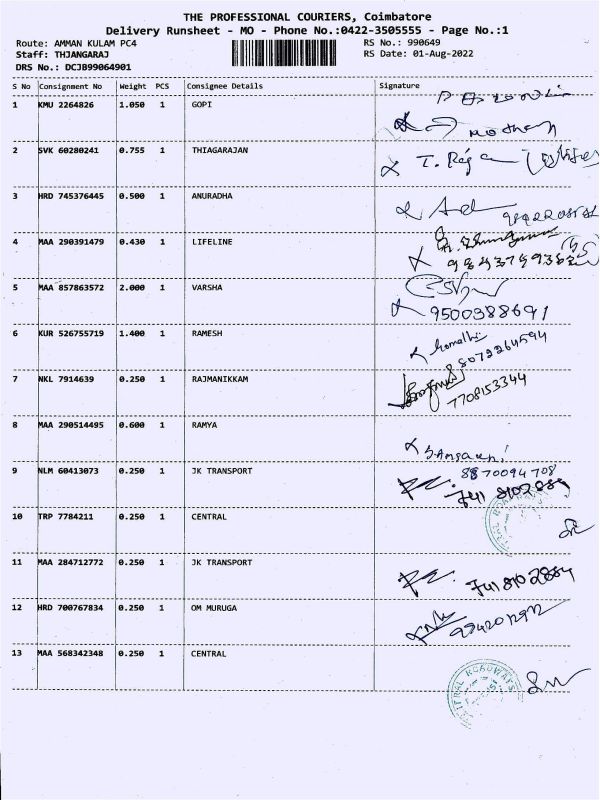 THE PROFESSIONAL COURIERS, Coimbatore
Delivery Runsheet - MO - Phone No.:0422-3505555 - Page No.:1
Route: AMMAN KULAM PC4 RS No.: 990649
Staff: THJANGARAJ RS Date: 01-Aug-2022
DRS No.: DCJB99064901
S No Consignment No Weight PCS Consignee Details Signature
1 KMU 2264826 1.050 1 GOPI
2 SVK 60280241 0.755 1 THIAGARAJAN
3 HRD 745376445 0.500 1 ANURADHA
4 MAA 290391479 0.430 1 LIFELINE
5 MAA 857863572 2.000 1 VARSHA
9500388691
6 KUR 526755719 1.400 1 RAMESH
8072264594
7 NKL 7914639 0.250 1 RAJMANIKKAM
7708153344
8 MAA 290514495 0.600 1 RAMYA
8870094708
9 NLM 60413073 0.250 1 JK TRANSPORT
10 TRP 7784211 0.250 1 CENTRAL
11 MAA 284712772 0.250 1 JK TRANSPORT
7418102884
12 HRD 700767834 0.250 1 OM MURUGA
13 MAA 568342348 0.250 1 CENTRAL
ROADWAYS